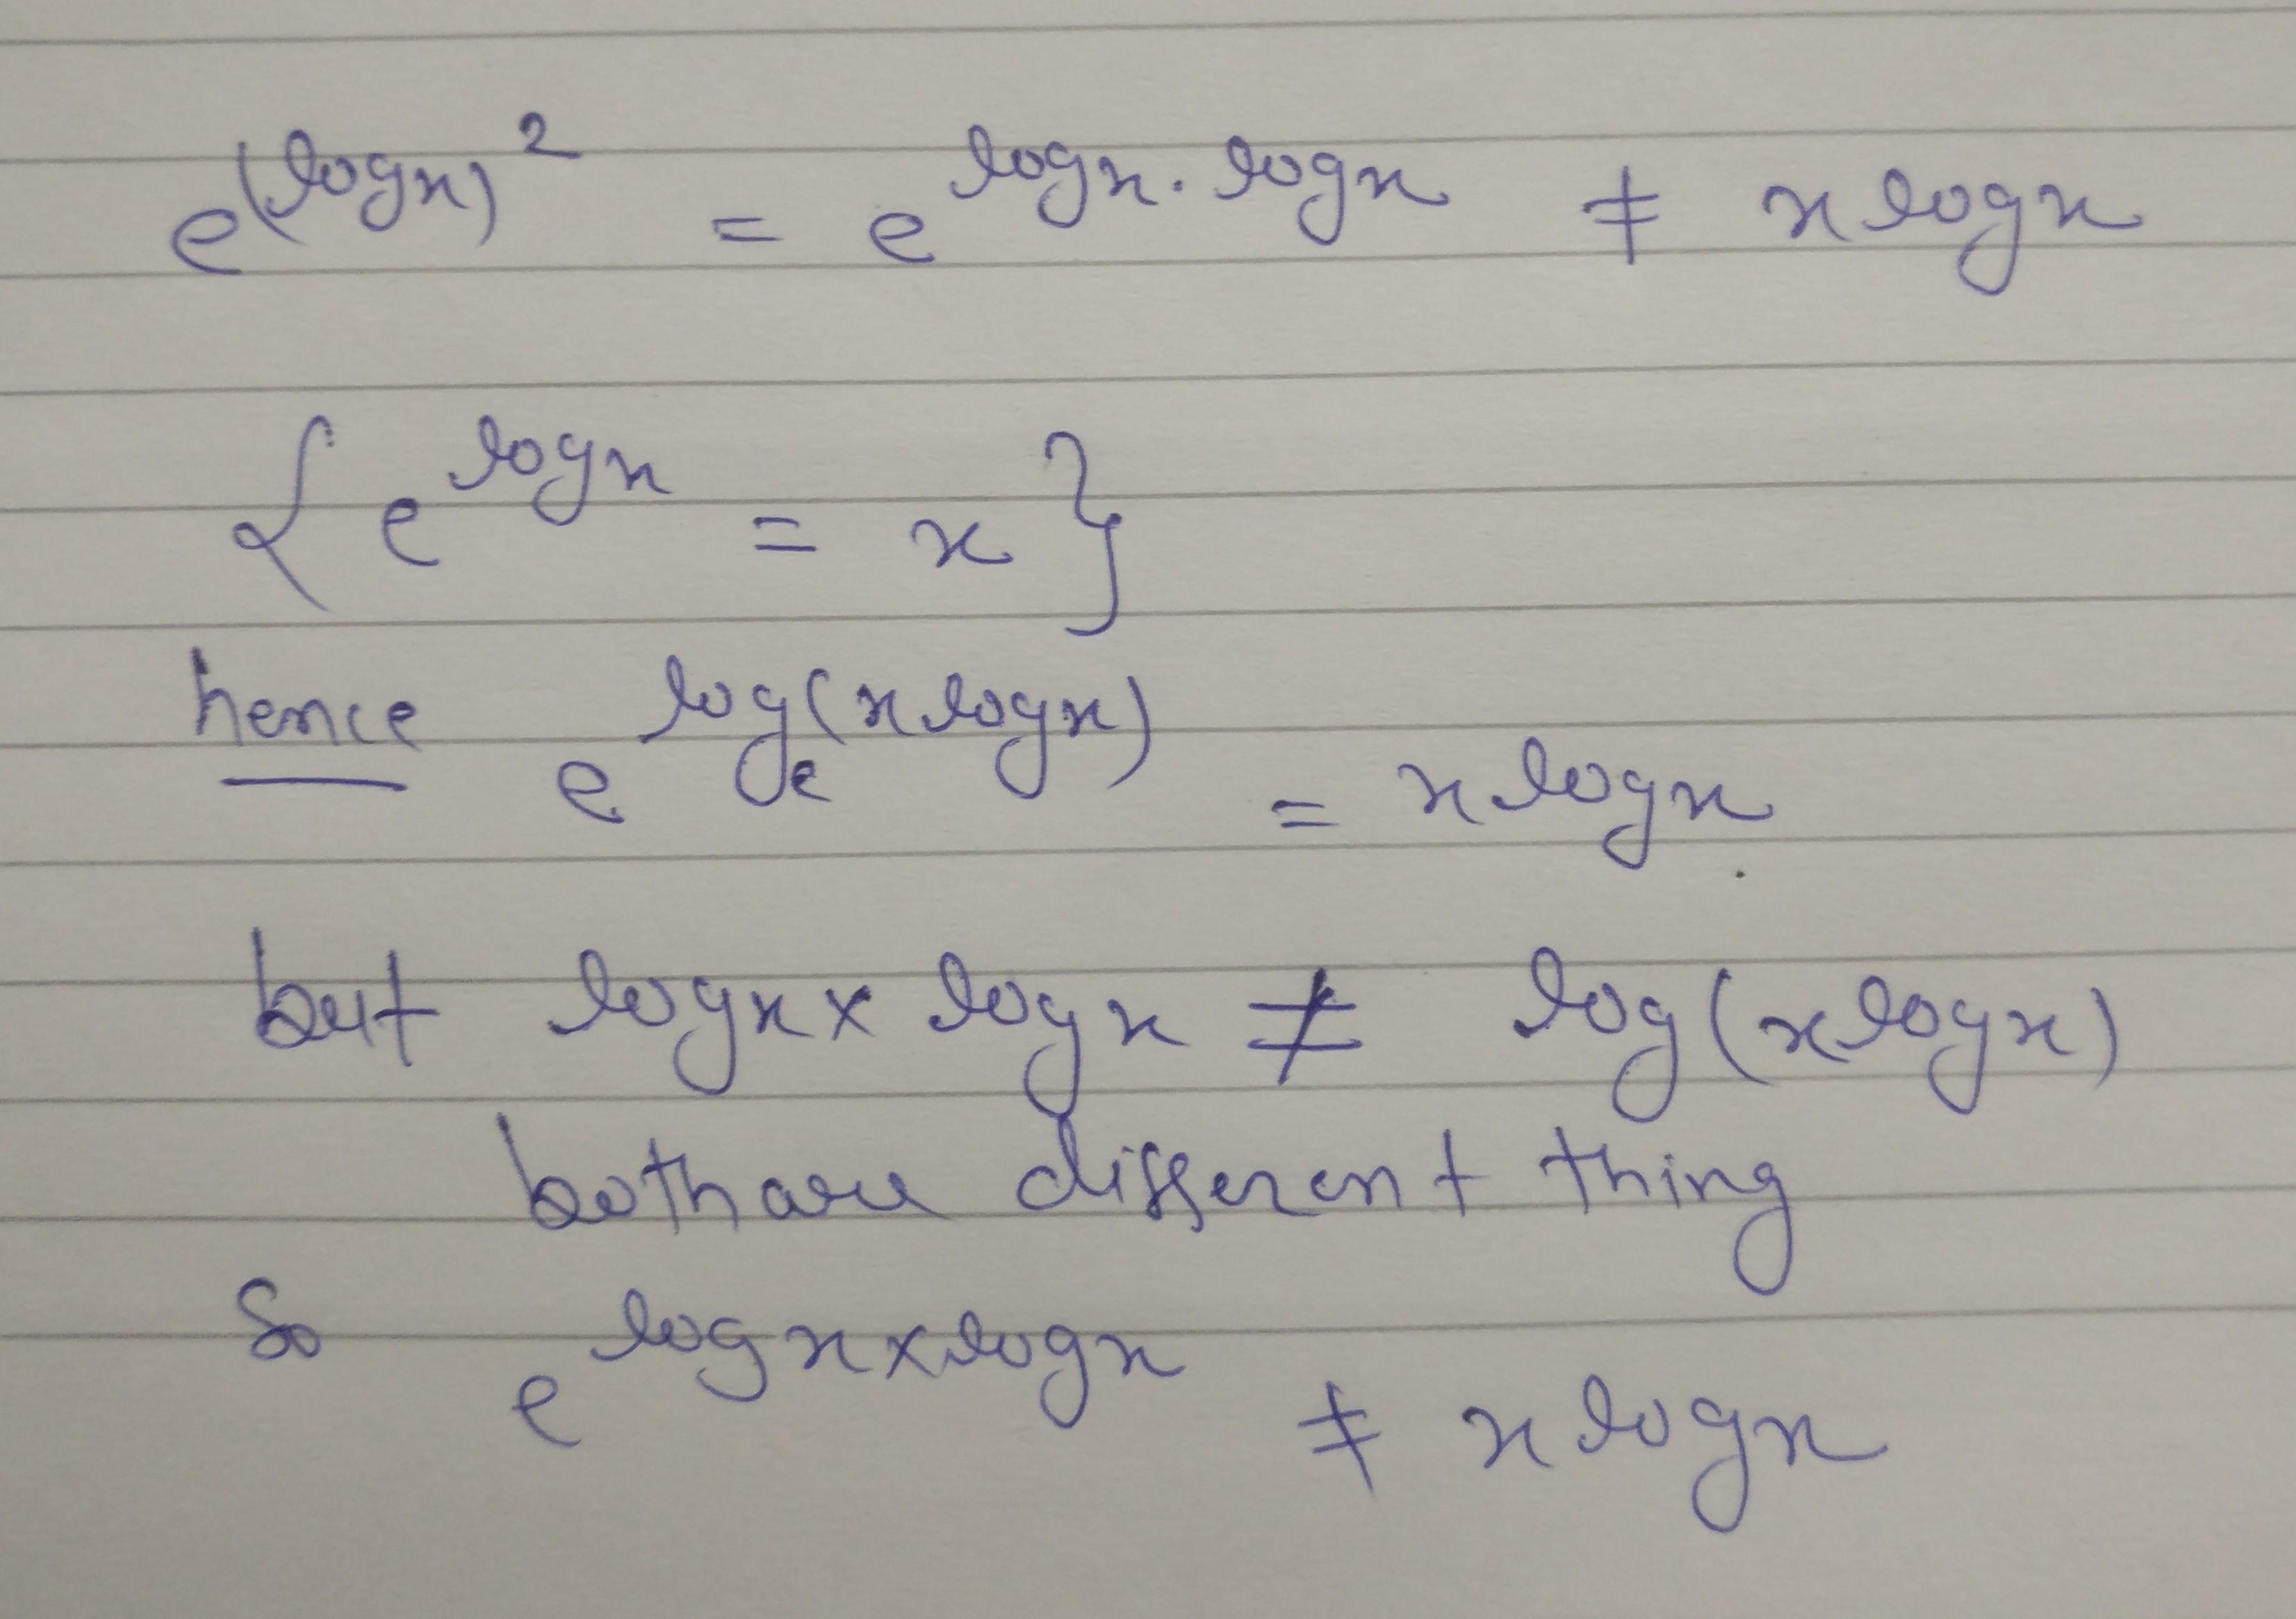 e^(logx)^2 = e^logx.logx ≠ x logx
{e^logx = x}
hence e^log_e(x logx) = x logx
but logx × logx ≠ log(x logx)
both are different thing
So e^logx×logx ≠ x logx